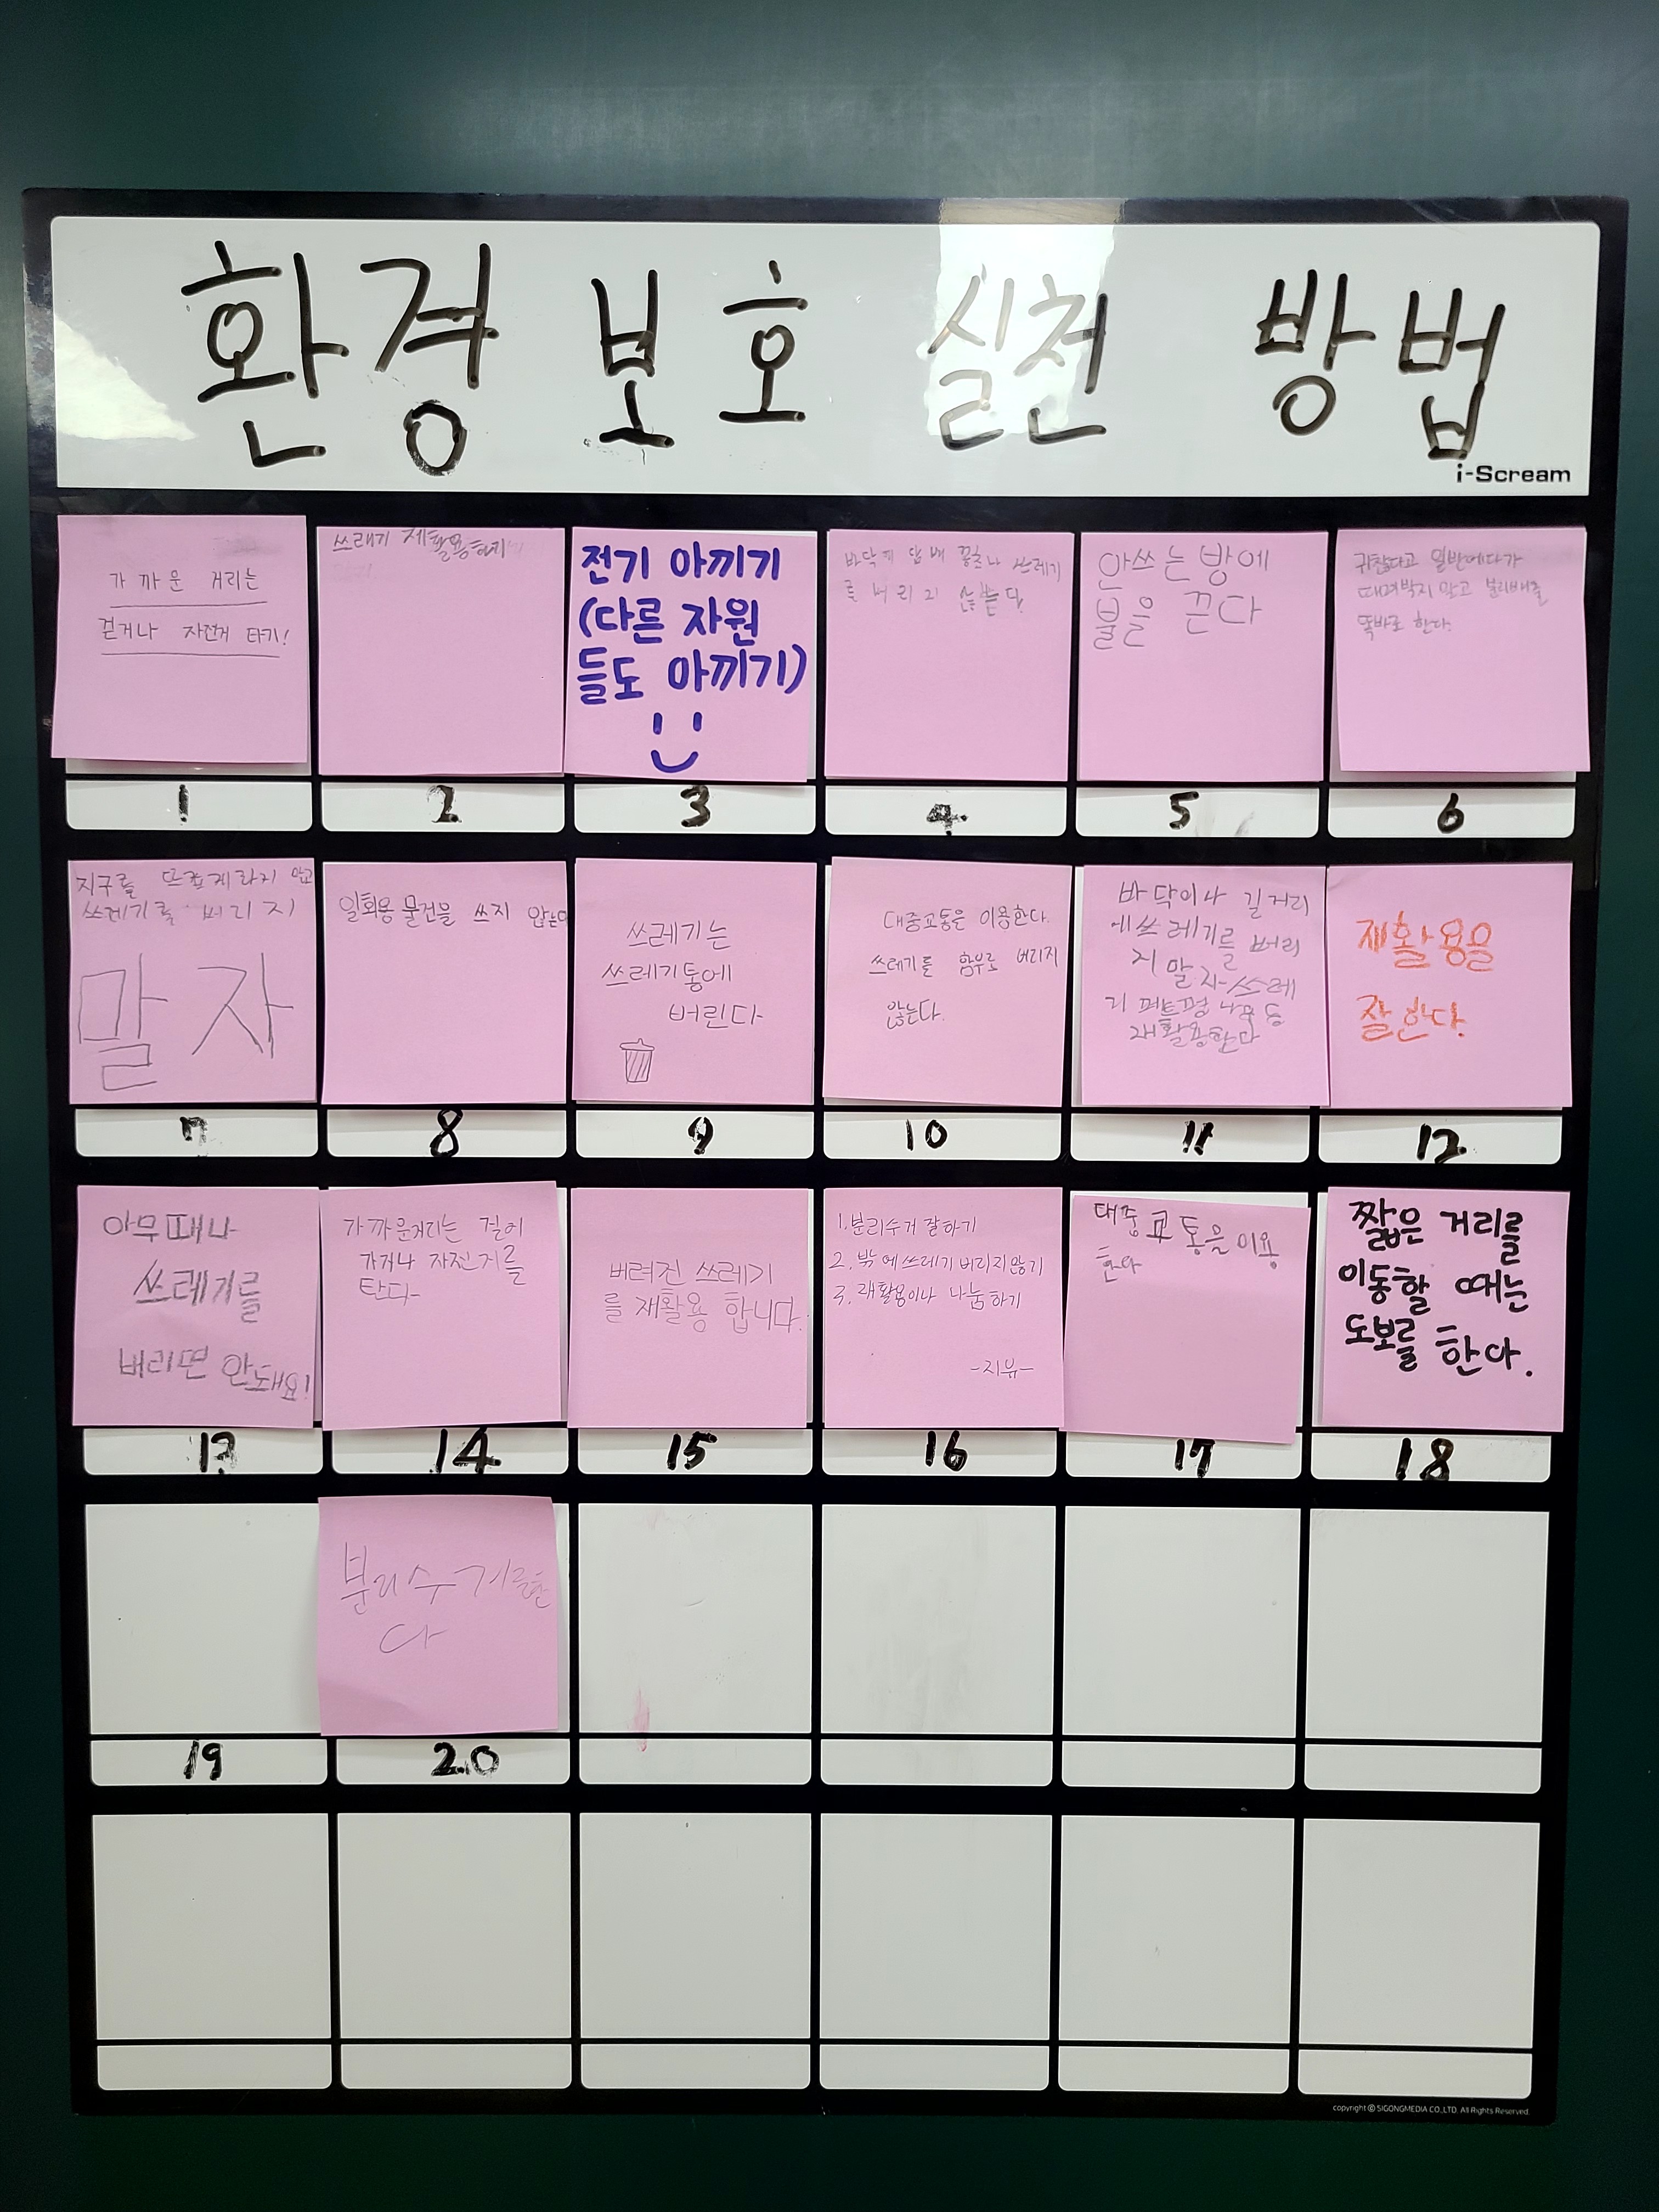 환경 보호 실천 방법
i-Scream
가까운 거리는
걷거나 자전거 타기!
1
쓰래기 재활용하기
2
전기 아끼기
(다른 자원
들도 아끼기)
3
바닥에 담배 꽁초나 쓰레기
를 버리지 않는다
4
안쓰는 방에
불을 끈다
5
귀찮다고 일반에다가
때려박지 말고 분리배출
똑바로 한다.
6
지구를 뜨겁게하지 말고
쓰레기를 버리지
말자
7
일회용 물건을 쓰지 않는다
8
쓰레기는
쓰레기통에
버린다
9
대중교통은 이용한다.
쓰레기를 함부로 버리지
않는다.
10
바닥이나 길거리
에쓰레기를 버리
지 말자-쓰레
기 페트병 등
재활용한다
11
재활용을
잘한다.
12
아무때나
쓰레기를
버리면 안돼요!
13
가까운거리는 걸어
가거나 자전거를
탄다-
14
버려진 쓰레기
를 재활용 합니다.
15
1.분리수거 잘하기
2.밖에쓰레기버리지않기
3.재활용이나 나눔하기
-지유-
16
대중교통을이용
한다
17
짧은 거리를
이동할 때는
도보를 한다.
18
19
분리수거를한
다
20
copyright ⓒ SIGONGMEDIA CO.,LTD. All Rights Reserved.